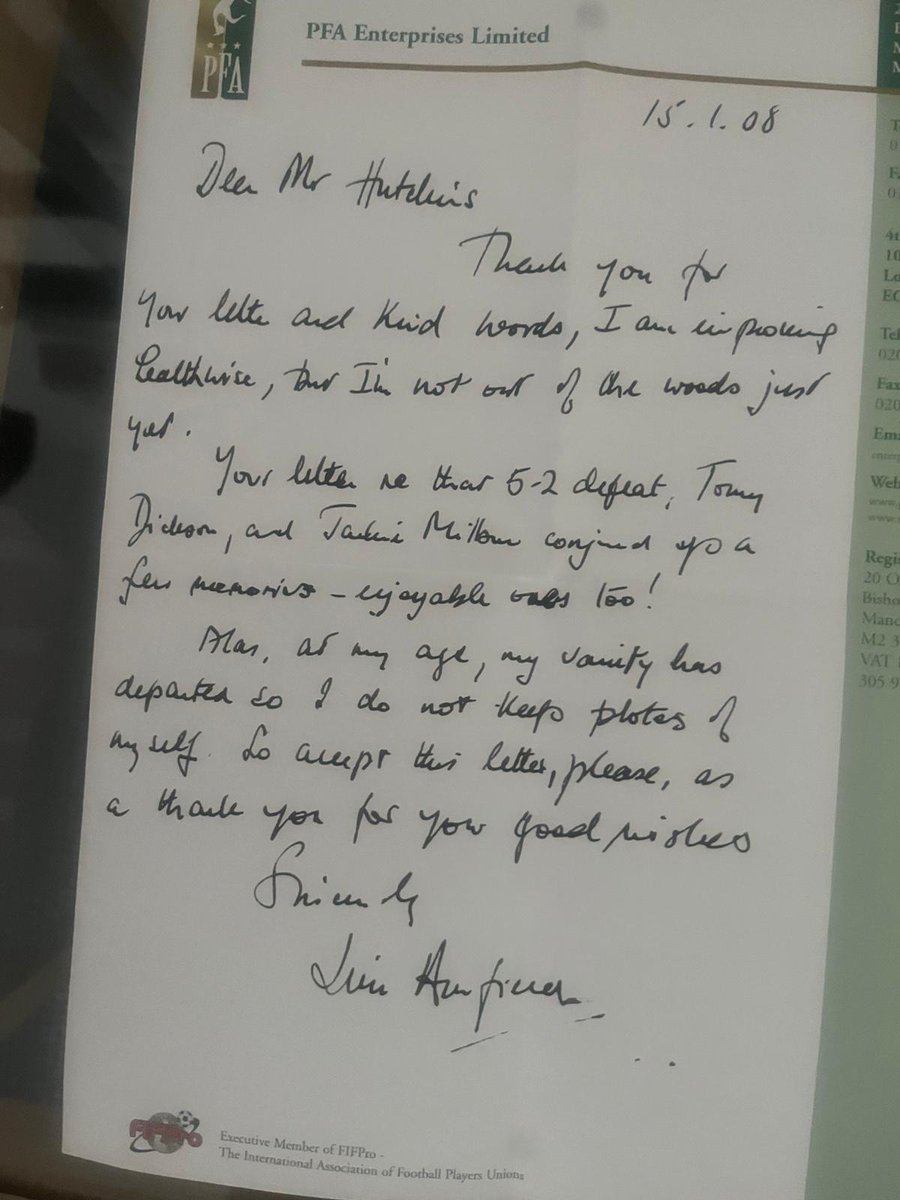 PFA
PFA Enterprises Limited
15.1.08
Dear Mr Hutchins
Thank you for
your letter and kind words, I am improving
healthwise, but I'm not out of the woods just
yet.
Your letter re that 5-2 defeat, Tommy
Dickson, and Jackie Milburn conjured up a
few memories - enjoyable ones too!
Alas, at my age, my vanity has
departed so I do not keep photos of
myself. So accept this letter, please, as
a thank you for your good wishes
Sincerely
Jim Armfield
4t
10
Lo
EC
Tel
020
Fax
020
Ema
enterp
Web
www.
www.
Regi
20 O
Bisho
Manc
M2 3
VAT
305.9
FIFPro
Executive Member of FIFPro -
The International Association of Football Players Unions